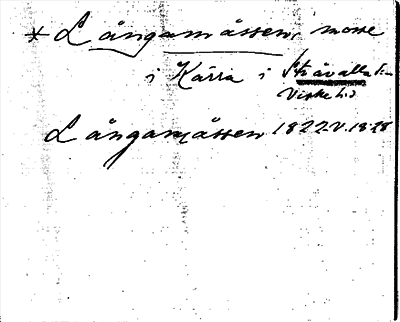 * Långamåssen, mosse
i Kärra i Stråvalla sn
Viske hd
Långamåssen 1822-V-18:28